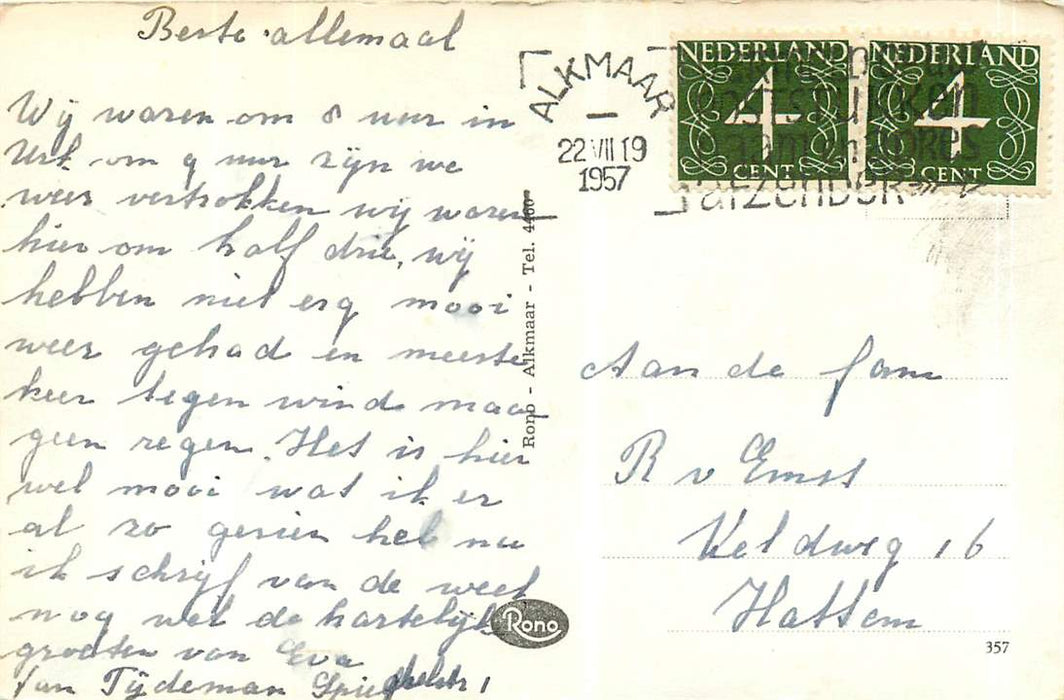 Beste allemaal
Wij waren om 8 uur in
Urk om 9 uur zijn we
weer vertrokken wij waren
hier om half drie, wij
hebben niet erg mooi
weer gehad en meeste
keer tegen wind maar
geen regen. Het is hier
wel mooi wat ik er
al zo gezien heb nu
ik schrijf van de week
nog wel de hartelijke
groeten van Eva
Van Tijdeman
ALKMAAR
22 VII 19
1957
NEDERLAND
4
CENT
NEDERLAND
4
CENT
afzender
Rono - Alkmaar - Tel. 4400
Aan de fam
R v Emst
Veldweg 16
Hattem
Rono
357